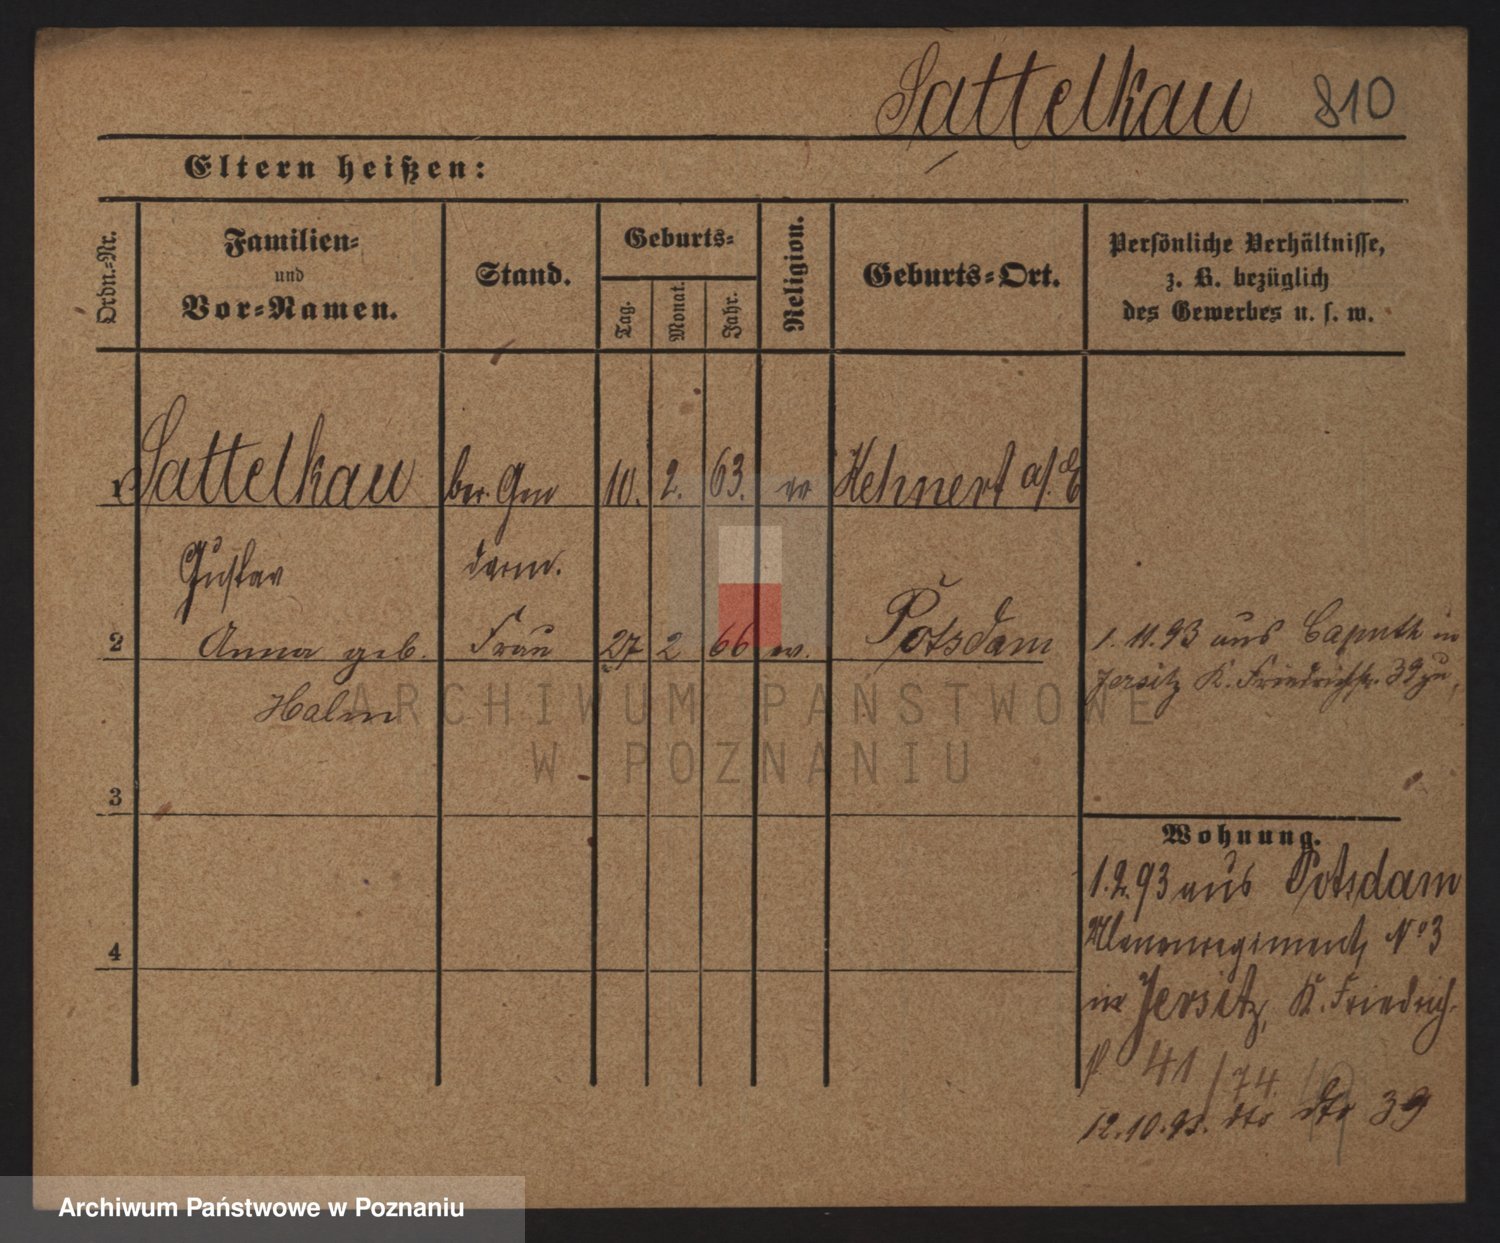 Sattelkau 810
Eltern heißen:
Ordn.-Nr.
Familien-
und
Vor-Namen.
Stand.
Geburts-
Tag.
Monat.
Jahr.
Religion.
Geburts-Ort.
Persönliche Verhältnisse,
z. B. bezüglich
des Gewerbes u. s. w.
1 Sattelkau ber. Gen 10. 2. 63. ev Kehnert a/. E
Gustav darm.
2 Anna geb. Frau 27 2 66 ev. Potsdam
Halm
1. 11. 93 aus Caputh in
Jersitz K. Friedrichstr. 39 zu
3
4
Wohnung.
1. 2. 93 aus Potsdam
Ulanenregiment No 3
in Jersitz, K. Friedrich-
41 / 74
12. 10. 93. dto dto 39
ARCHIWUM PAŃSTWOWE
W POZNANIU
Archiwum Państwowe w Poznaniu